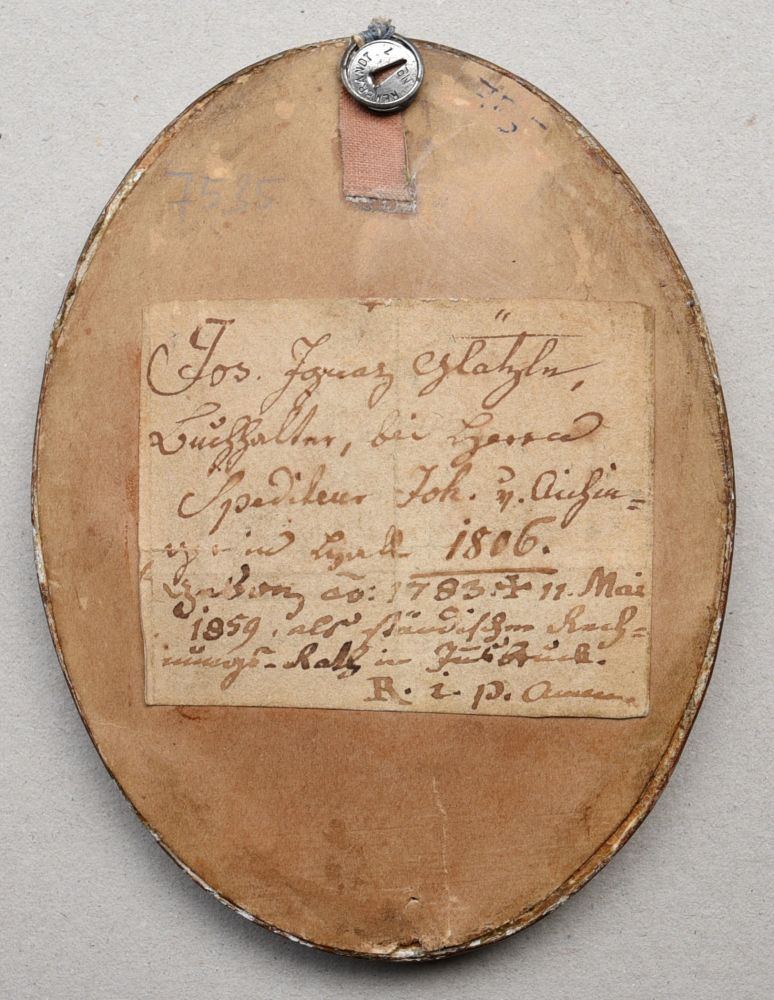 REMBRANDT
7535
Jos. Ignaz Glätzle,
Buchhalter, bei Herrn
Spediteur Joh. v. Aichin=
ger in Hall 1806.
Geboren ao: 1783. ✝ 11. Mai
1859, als ständischer Rech=
nungs-Rath in Innsbruck.
R. i. p. Amen.